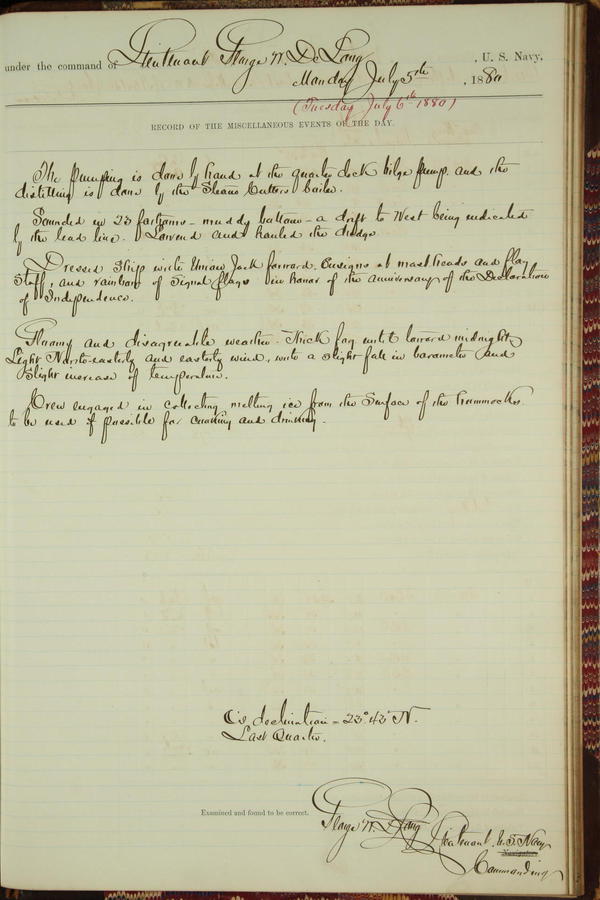 under the command of Lieutenant George W. De Long, U. S. Navy,
Monday July 5th, 1880
(Tuesday July 6th 1880)
RECORD OF THE MISCELLANEOUS EVENTS OF THE DAY.
The pumping is done by hand at the quarter deck bilge pump, and the
distilling is done by the Steam Cutters boiler.
Sounded in 23 fathoms - muddy bottom - a drift to West being indicated
by the lead line. Lowered and hauled the dredge.
Dressed Ship with Union Jack forward, Ensigns at mast heads and flag
Staff, and rainbow of Signal flags in honor of the anniversary of the Declaration
of Independence.
Gloomy and disagreeable weather. Thick fog until toward midnight.
Light North-easterly and easterly wind, with a slight fall in barometer and
slight increase of temperature.
Crew engaged in collecting melting ice from the Surface of the hummocks
to be used if possible for cooking and drinking.
☾'s declination = 23° 43' N.
Last Quarter.
Examined and found to be correct.
George W. De Long Lieutenant U.S. Navy
Navigator.
Commanding